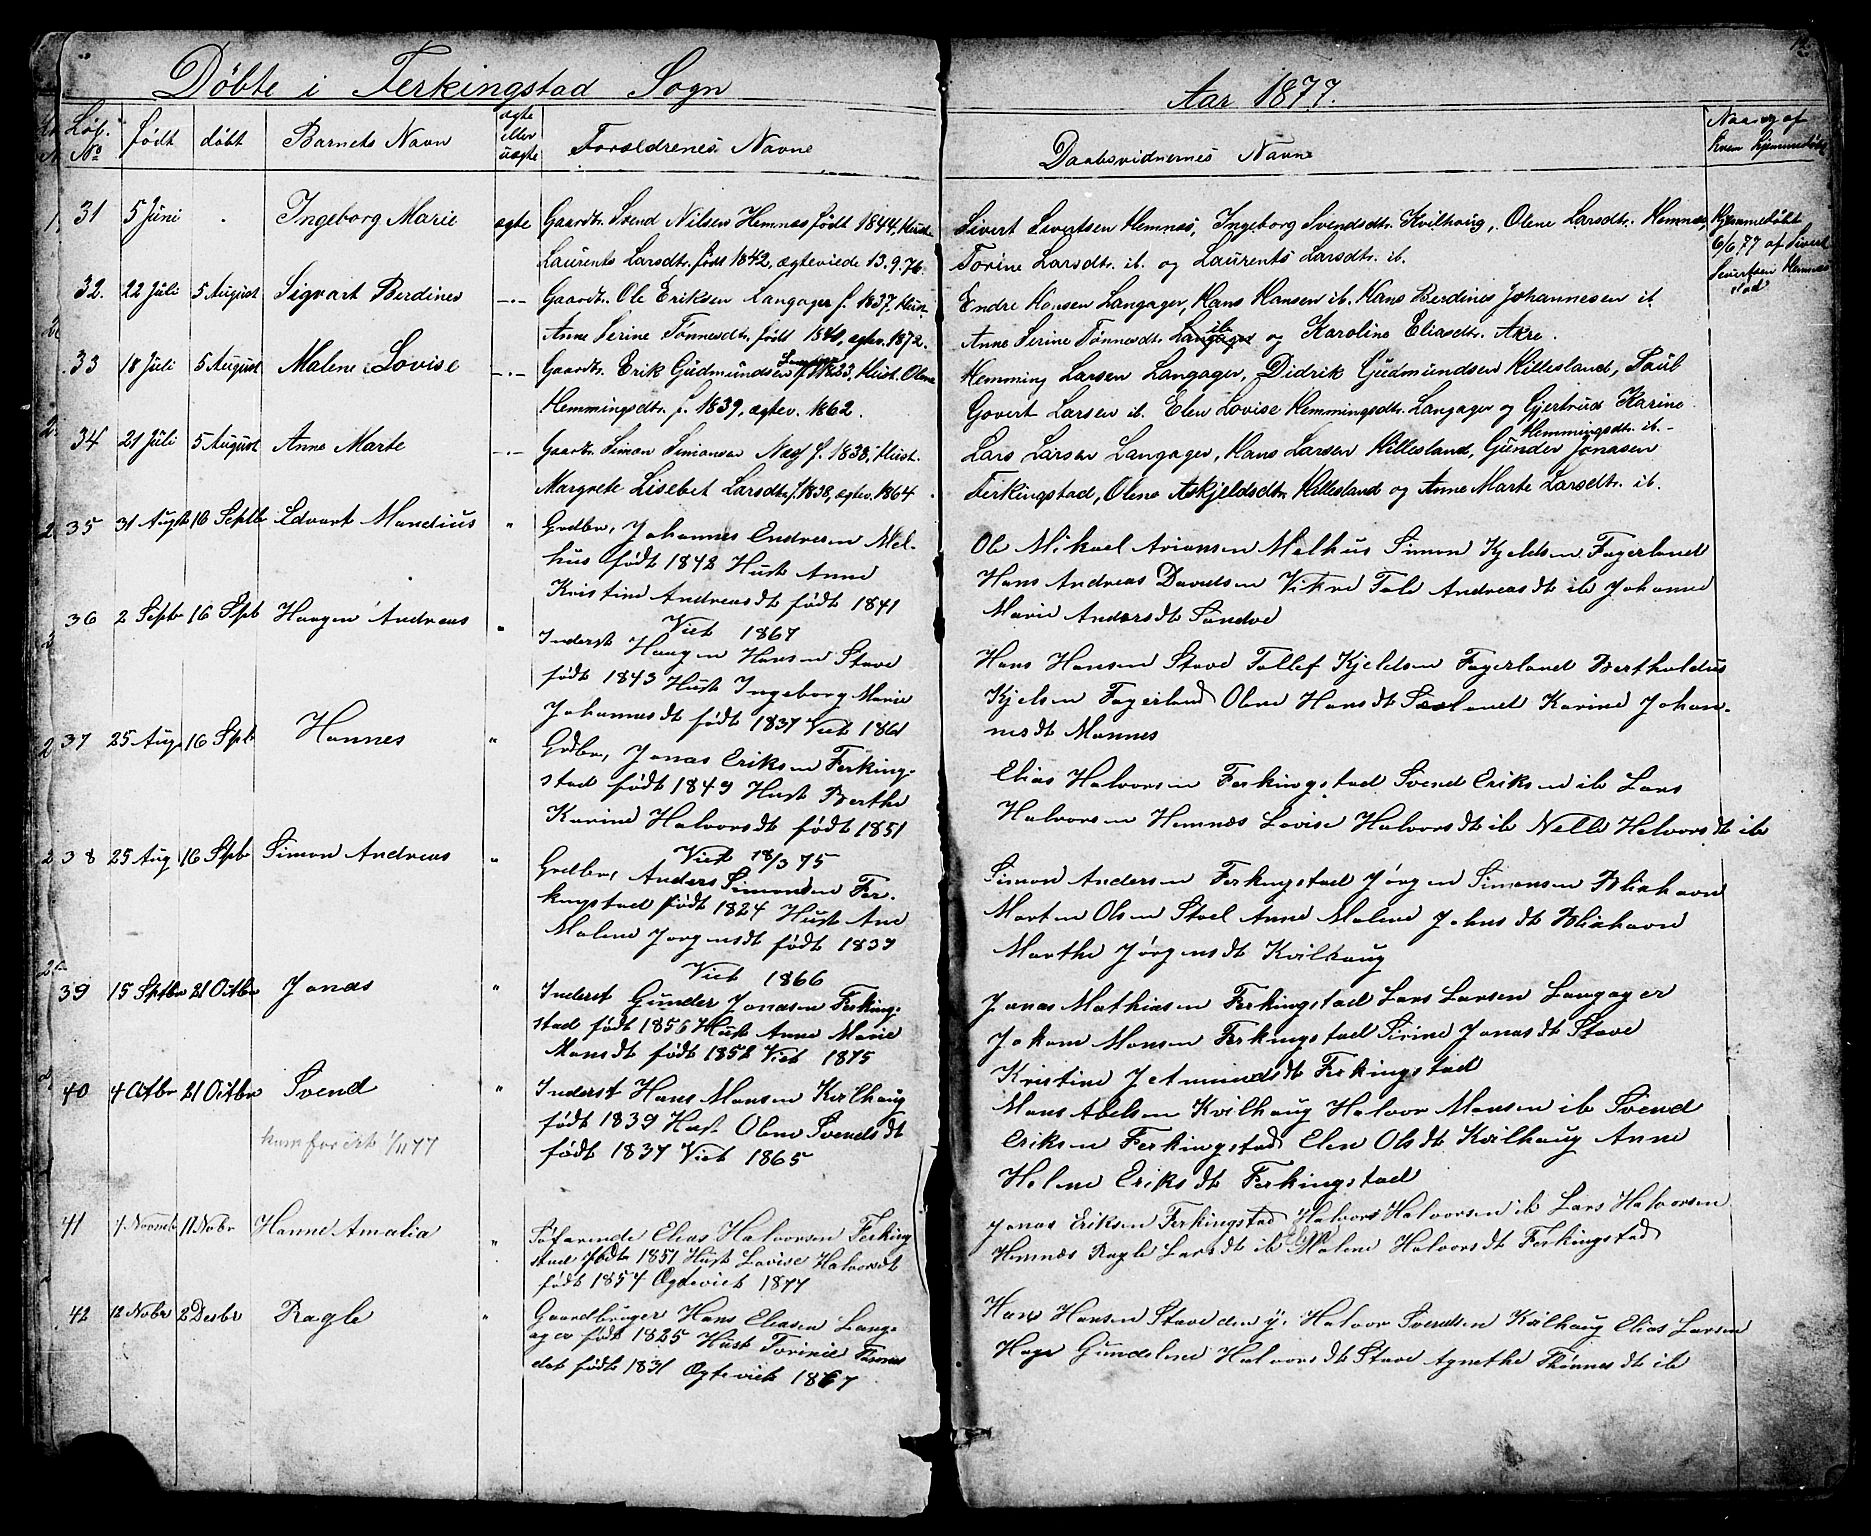 Døbte i Ferkingstad Sogn
Aar 1877.
Løb. No
født
døbt
Barnets Navn
ægte eller uægte
Forældrenes Navne
Daabsvidnernes Navne
Naar og af hvem hjemmedøbt
31 5 Juni Ingeborg Marie ægte Gaardbr. Svend Nilsen Hemnæs født 1844, Hust.
Laurents Larsdtr. født 1842, ægteviede 13.9.76.
Sivert Sivertsen Hemnæs, Ingeborg Svendsdtr. Kvilhaug, Olene Larsdtr. Hemnæs,
Torine Larsdtr. ib. og Laurents Larsdtr. ib.
Hjemmedøbt
6/6 77 af Sivert
Sivertsen Hemnæs
32. 22 Juli 5 August Sigvart Berdines -"- Gaardbr. Ole Eriksen Langager f. 1837, Hust.
Anne Serine Tønnesdtr. født 1840, ægtev. 1872.
Endre Hansen Langager, Hans Hansen ib. Hans Berdines Johannesen ib
Anne Serine Tønnesdtr. Langager ib og Karoline Eliasdtr. Akre.
33 18 Juli 5 August Malene Lovise -"- Gaardbr. Erik Gudmundsen Langager f. 1833, Hust. Olene
Hemmingsdtr. f. 1839, ægtev. 1862.
Hemming Larsen Langager, Didrik Gudmundsen Hillesland, Paul
Govert Larsen ib. Elen Lovise Hemmingsdtr. Langager og Gjertrud Karine
Hemmingsdtr. ib.-
34 21 Juli 5 August Anne Marte -"- Gaardbr. Simon Simonsen Næs f. 1838, Hust.
Margrete Lisebet Larsdtr. f. 1838, ægtev. 1864
Lars Larsen Langager, Hans Larsen Hillesland, Gunder Jonasen
Ferkingstad, Olene Askjeldsdtr. Hillesland og Anne Marte Larsdtr. ib.
35 31 Augst 16 Septbr Edvart Mandius " Grdbr, Johannes Endresen Mel-
hus født 1842 Hust Anne
Kristine Andreasdt født 1841
Viet 1867
Ole Mikael Ariansen Melhus Simon Kjeldsen Fagerland
Hans Andreas Davidsen Vikre Tale Andreasdt ib Johanne
Marie Andersdt Sandve
36 2 Sepbr 16 Spb Haagen Andreas " Inderst Haagen Hansen Stave
født 1843 Hust Ingeborg Marie
Johannesdt født 1837 Viet 1861
Hans Hansen Stave Tollef Kjeldsen Fagerland Bertholdus
Kjelsen Fagerland Oline Hansdt Sæland Karine Johan-
nesdt Mannes
37 25 Aug 16 Spb Hannes " Grdbr, Jonas Eriksen Ferking-
stad født 1849 Hust Berthe
Karine Halvorsdt født 1851
Viet 18/3 75
Elias Halvorsen Ferkingstad Svend Eriksen ib Lars
Halvorsen Hemnæs Lovise Halvorsdt ib Nelle Halvorsdt ib
38 25 Aug 16 Spb Simon Andreas " Grdbr, Anders Simonsen Fer-
kingstad født 1824 Hust Ane
Malene Jorgensdt født 1837
Viet 1866
Simon Andersen Ferkingstad Jørgen Simonsen Blikhavn
Morten Olsen Stol Anne Malene Johnsdt Blikhavn
Marthe Jørgensdt Kvilhaug
39 15 Sptbr 21 Octbr Jonas " Inderst Gunder Jonasen Ferking-
stad født 1856 Hust Anne Marie
Monsdt født 1852 Viet 1875
Jonas Mathiasen Ferkingstad Lars Larsen Langager
Johan Monsen Ferkingstad Sirine Jonasdt Stave
Kristine Jetmundsdt Ferkingstad
40 4 Octbr 21 Octbr Svend " Inderst Hans Monsen Kvilhaug
født 1839 Hust Oline Svendsdt
født 1837 Viet 1865
Mons Abelsen Kvilhaug Halvor Monsen ib Svend
Eriksen Ferkingstad Elen Olsdt Kvilhaug Anne
Helene Eriksdt Ferkingstad
41 11 Nobr Hanne Amalia " Søfarende Elias Halvorsen Ferking
stad født 1851 Hust Lovise Halvorsdt
født 1854 Ægteviet 1877
Jonas Eriksen Ferkingstad Halvor Halvorsen ib Lars Halvorsen
Hemnæs Ragle Larsdt ib Malene Halvorsdt Ferkingstad
42 12 Nobr 2 Desbr Ragle " Gaardbruger Hans Eliasen Lang-
ager født 1825 Hust Torine Tønnes
dat født 1831 Ægteviet 1867
Hans Hansen Stave den y, Halvor Svendsen Kvilhaug Elias Larsen
Hoge Gundeline Halvorsdt Stave Agnethe Thønnesdt ib